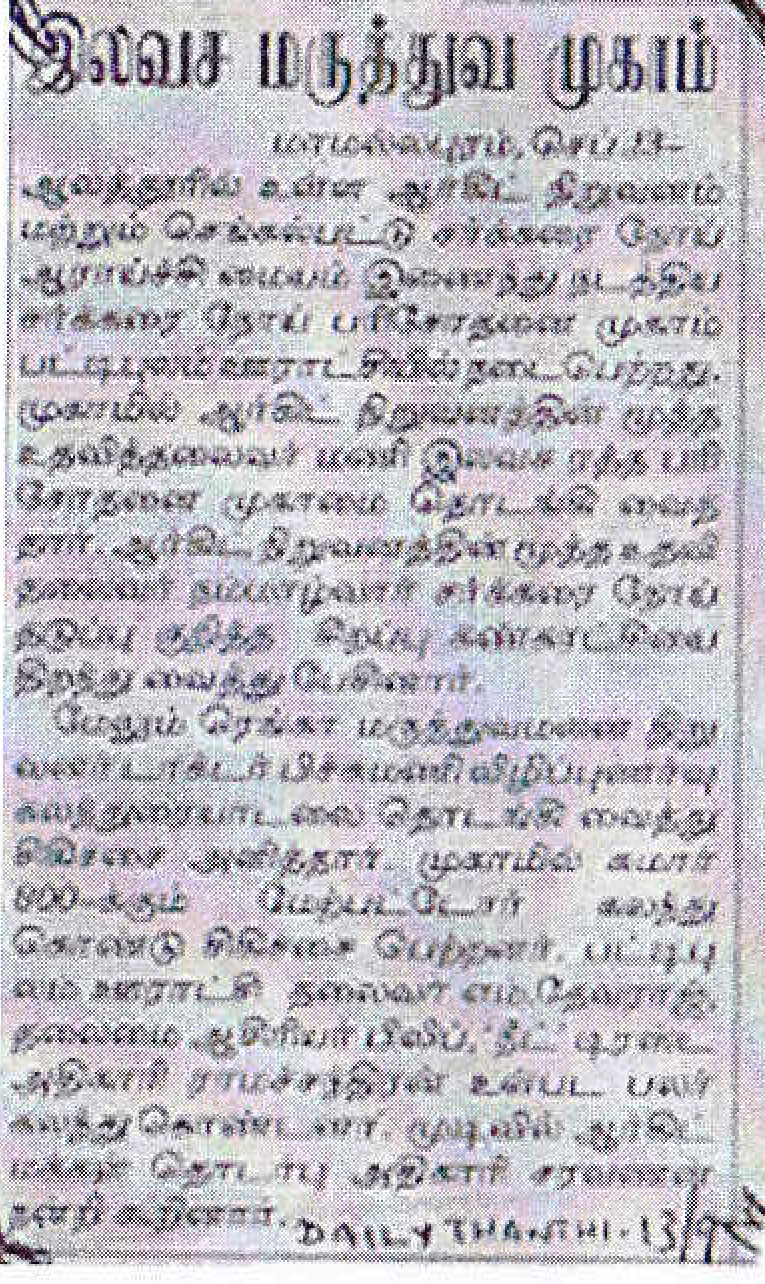 இலவச மருத்துவ முகாம்
மாமல்லபுரம், செப்.13-
ஆலத்தூரில் உள்ள ஆர்கிட் நிறுவனம்
மற்றும் செங்கல்பட்டு சர்க்கரை நோய்
ஆராய்ச்சி மையம் இணைந்து நடத்திய
சர்க்கரை நோய் பரிசோதனை முகாம்
பட்டிபுலம் ஊராட்சியில் நடைபெற்றது.
முகாமில் ஆர்கிட் நிறுவனத்தின் மூத்த
உதவித்தலைவர் மணி இலவச ரத்த பரி
சோதனை முகாமை தொடங்கி வைத்
தார். ஆர்கிட் நிறுவனத்தின் மூத்த உதவி
தலைவர் நம்மாழ்வார் சர்க்கரை நோய்
தடுப்பு குறித்த சிறப்பு கண்காட்சியை
திறந்து வைத்து பேசினார்.
மேலும் ரெங்கா மருத்துவமனை நிறு
வனர் டாக்டர் பிச்சுமணி விழிப்புணர்வு
கலந்துரையாடலை தொடங்கி வைத்து
சிகிச்சை அளித்தார். முகாமில் சுமார்
800-க்கும் மேற்பட்டோர் கலந்து
கொண்டு சிகிச்சை பெற்றனர். பட்டிபு
லம் ஊராட்சி தலைவர் எம்.தேவராஜ்,
தலைமை ஆசிரியர் பிலிப், டிரஸ்ட்
அதிகாரி ராமச்சந்திரன் உள்பட பலர்
கலந்து கொண்டனர். முடிவில் ஆர்கிட்
மக்கள் தொடர்பு அதிகாரி சரவணன்
நன்றி கூறினார். DAILY THANTHI - 13/9